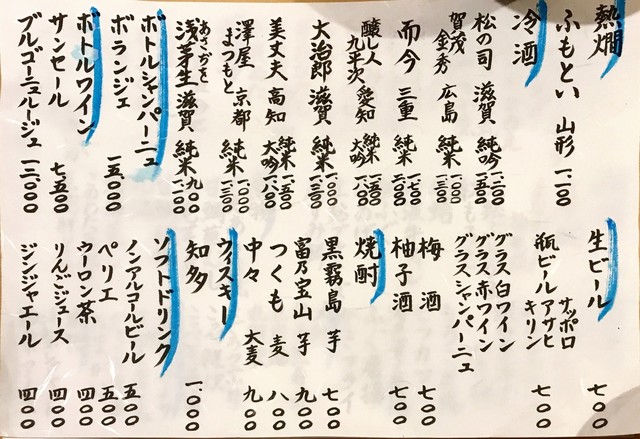 熱燗
ふもとい 山形 一一〇〇
冷酒
松の司 滋賀 純吟 一二〇〇 一五〇〇
賀茂金秀 広島 純米 一〇〇〇 一三〇〇
而今 三重 純米 一七〇〇 二〇〇〇
醸し人九平次 愛知 純米大吟 一五〇〇 一八〇〇
大治郎 滋賀 純米 一〇〇〇 一三〇〇
美丈夫 高知 純米大吟 一五〇〇 一八〇〇
澤屋まつもと 京都 純米 一〇〇〇 一三〇〇
あさぢを
浅茅生 滋賀 純米 九〇〇
ボトルシャンパーニュ
ボランジェ 一五〇〇〇
ボトルワイン
サンセール 七五〇〇
ブルゴーニュルージュ 一二〇〇〇
生ビール
サッポロ 七〇〇
瓶ビール アサヒ キリン 七〇〇
グラス白ワイン
グラス赤ワイン
グラスシャンパーニュ
梅酒 七〇〇
柚子酒 七〇〇
焼酎
黒霧島 芋 七〇〇
富乃宝山 芋 九〇〇
つくも 麦 八〇〇
中々 大麦 九〇〇
ウィスキー
知多 一〇〇〇
ソフトドリンク
ノンアルコールビール 五〇〇
ペリエ 五〇〇
ウーロン茶 四〇〇
りんごジュース 四〇〇
ジンジャエール 四〇〇